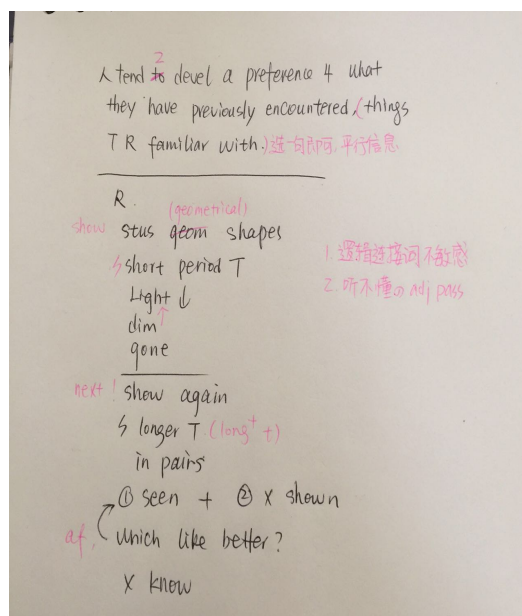 人 tend to 2 devel a preference 4 what
they have previously encountered. (things
T R familiar with.) 选一句即可,平行信息
R.
(geometrical)
show stus geom shapes
ㄣ short period T
Light ↓
dim ↑
gone
1. 逻辑连接词不敏感
2. 听不懂の adj pass
next! show again
ㄣ longer T. (long⁺ t)
in pairs
① seen + ② × shown
af. which like better?
× know